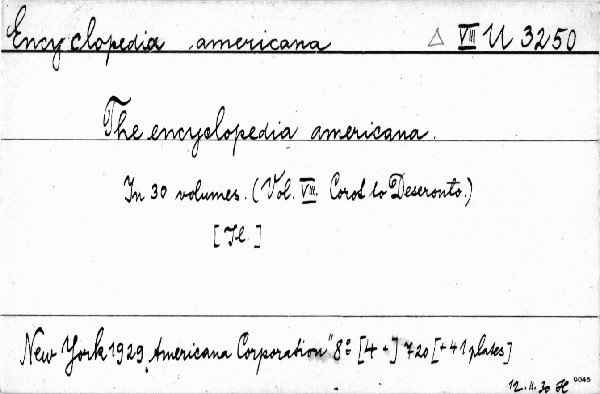 Encyclopedia americana △ VIII U 3250
The encyclopedia americana.
In 30 volumes. (Vol. VIII. Corot to Deseronto.)
[Il.]
New York 1929 „Americana Corporation" 8° [4 -] 720 [+ 41 plates]
12. II. 30 H
9045